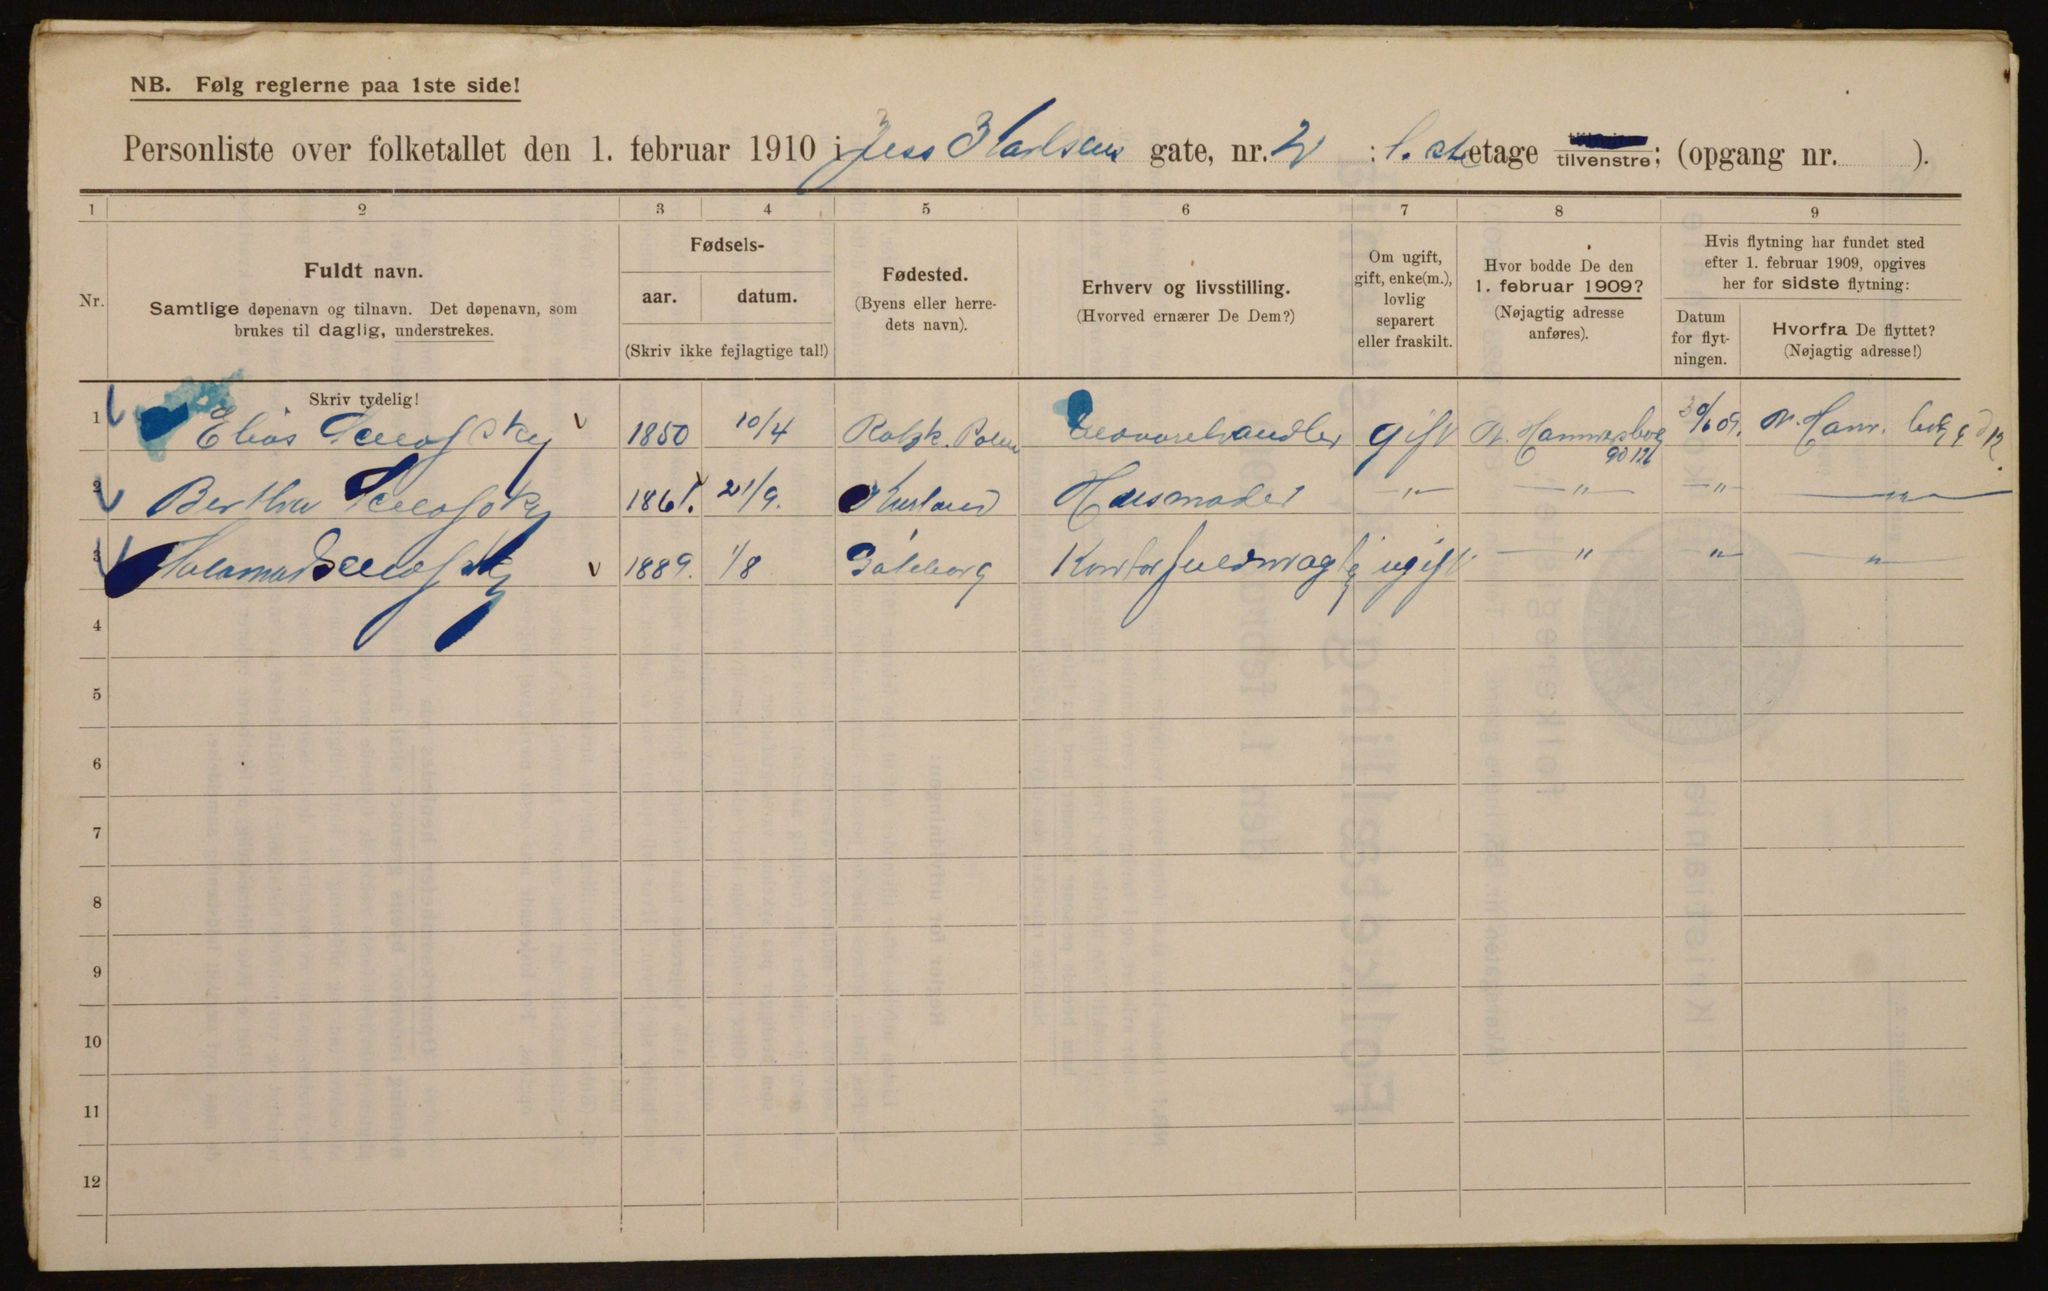 NB. Følg reglerne paa 1ste side!
Personliste over folketallet den 1. februar 1910 i Jess Karlsens gate, nr. 2 : 1. st etage tilvenstre; (opgang nr. ).
1 2 3 4 5 6 7 8 9
Nr.
Fuldt navn.
Samtlige døpenavn og tilnavn. Det døpenavn, som
brukes til daglig, understrekes.
Fødsels-
aar. datum.
(Skriv ikke fejlagtige tal!)
Fødested.
(Byens eller herre-
dets navn).
Erhverv og livsstilling.
(Hvorved ernærer De Dem?)
Om ugift,
gift, enke(m.),
lovlig
separert
eller fraskilt.
Hvor bodde De den
1. februar 1909?
(Nøjagtig adresse
anføres).
Hvis flytning har fundet sted
efter 1. februar 1909, opgives
her for sidste flytning:
Datum
for flyt-
ningen.
Hvorfra De flyttet?
(Nøjagtig adresse!)
Skriv tydelig!
1 Elias 1850 10/4 Polen gift N. Hammersborg 30/6 09. N. Ham.
2 Bertha 1861. 21/9. Kurland Husmoder — " — — " — — " — — " —
3 1889. 1/8 Göteborg Kontorfuldmægtig ugift — " — " — " —
4
5
6
7
8
9
10
11
12